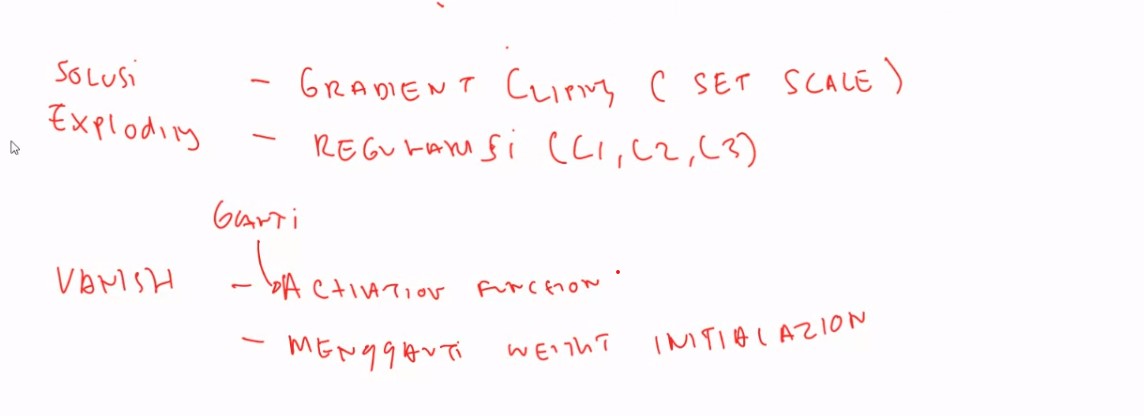 SOLUSi - GRADIENT CLIPING ( SET SCALE )
Exploding - REGULARISSi (L1, L2, L3)
GANTi
VANISH - ACTIVATION FUNCTION
- MENGGANTi WEIGHT INITIALAZION